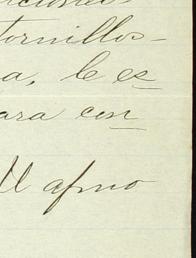 tornillos-
a, le es
ara con
afmo